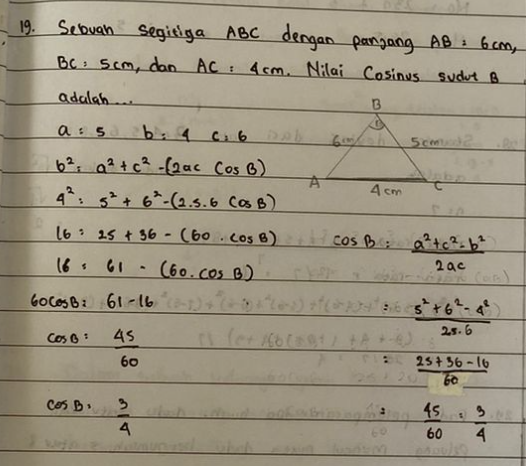 19. Sebuah segitiga ABC dengan panjang AB = 6cm,
BC = 5cm, dan AC = 4cm. Nilai Cosinus sudut B
adalah...
a = 5 b = 4 c = 6
b² = a² + c² - (2ac Cos B)
4² = 5² + 6² - (2.5.6 Cos B)
16 = 25 + 36 - (60 . cos B)
16 = 61 - (60 . cos B)
60cosB = 61 - 16
cos B = 45/60
cos B = 3/4
B
6cm 5cm
A C
4cm
cos B = a² + c² - b² / 2ac
= 5² + 6² - 4² / 25.6
= 25 + 36 - 16 / 60
= 45/60 = 3/4